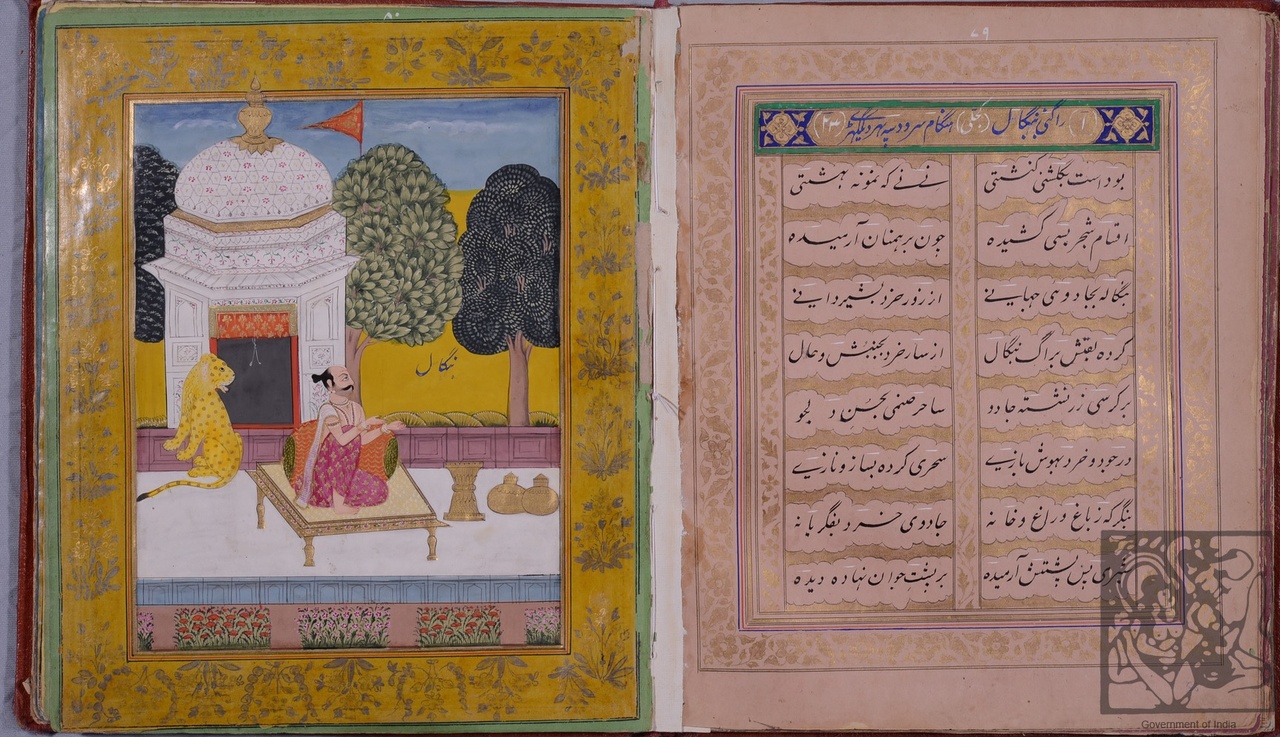 ۷۹
(۱) راگنی بنگال (جنگلی) هنگام سرود سه پهر دیگر (۲۴)
بود است بگلشنی کنشتی نی نی که نمونه بهشتی
اقسام شجر بسی کشیده چون برهمنان آرمیده
بنگاله بجادوی جهانی از زور خرد بشیر دانی
کرده براگ بنگال از سار خرد بجنبش و حال
بر کرسی زر نشسته جادو ساحر صنمی بحسن دلجو
در خود و خرد بهوش بازی سحری کرده بساز و نازی
بنگر که ز باغ و راغ و خانه جادوی خرد
شیری پس پشتش آرمیده بر پشت جوان نهاده دیده
بنگال
Government of India